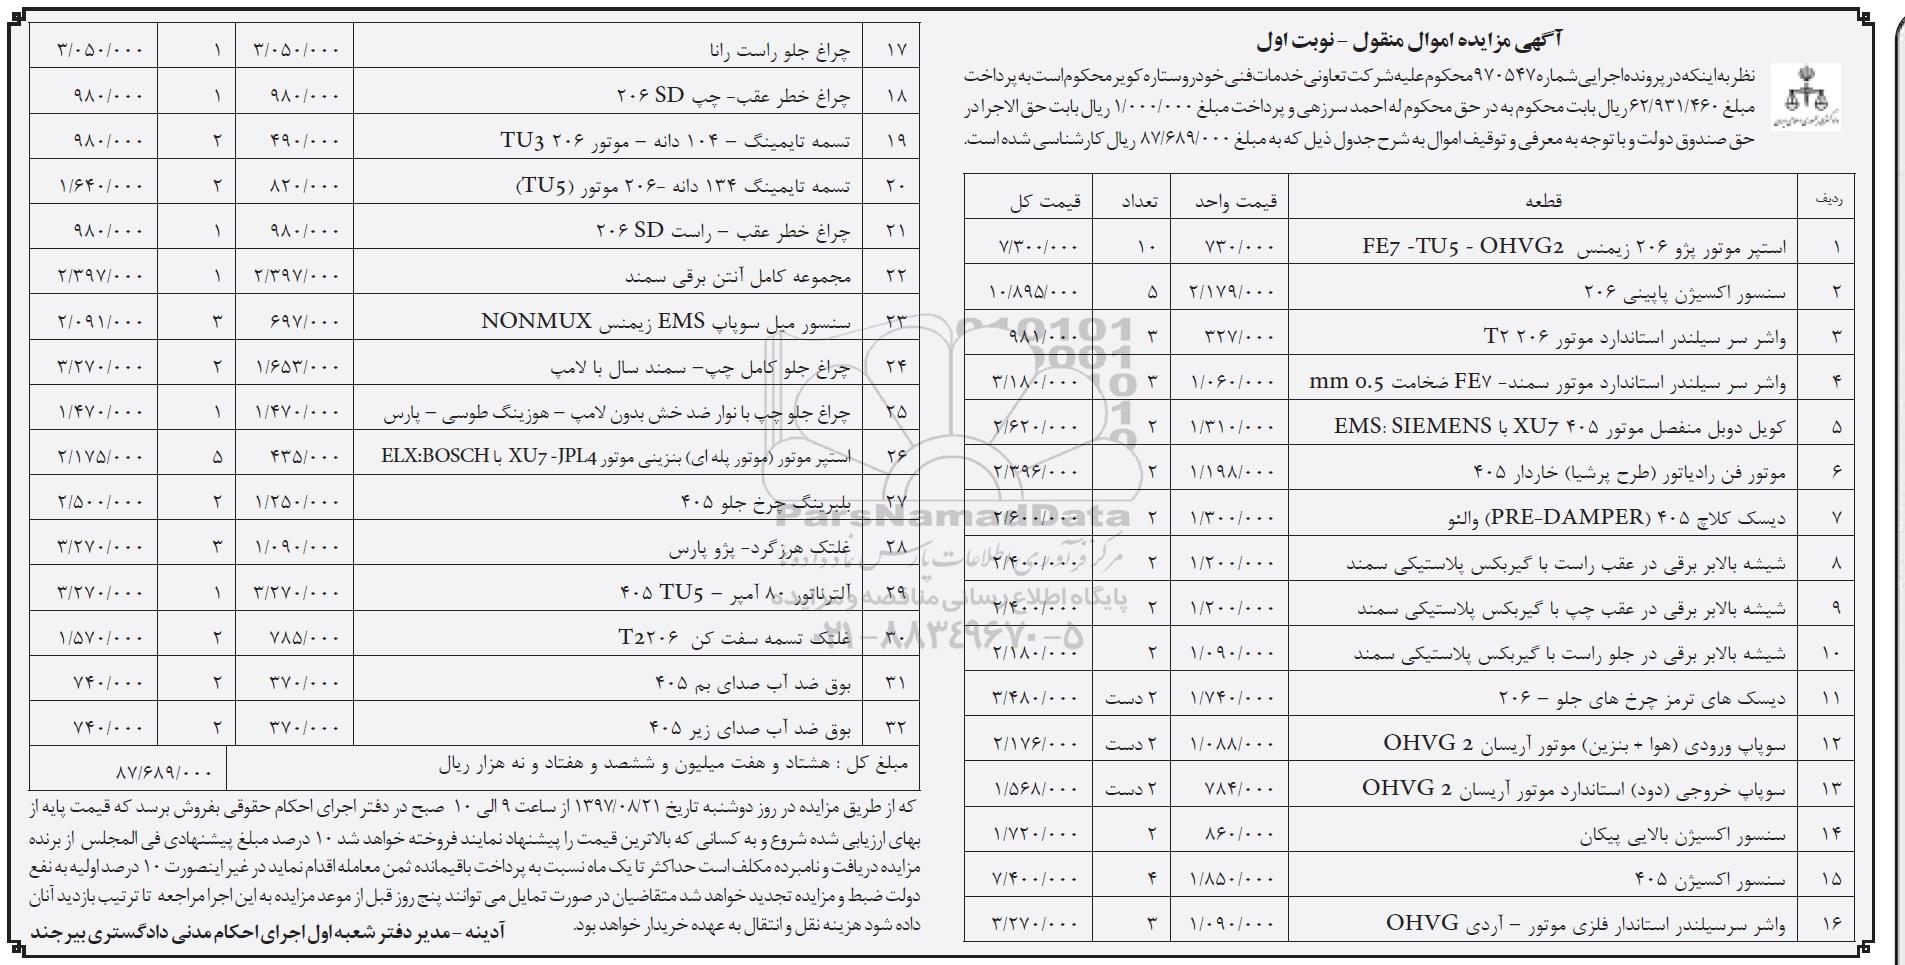 آگهی مزایده اموال منقول – نوبت اول
نظر به اینکه در پرونده اجرایی شماره ۹۷۰۵۴۷ محکوم علیه شرکت تعاونی خدمات فنی خودرو ستاره کویر محکوم است به پرداخت
مبلغ ۶۲/۹۳۱/۴۶۰ ریال بابت محکوم به در حق محکوم له احمد سرزهی و پرداخت مبلغ ۱/۰۰۰/۰۰۰ ریال بابت حق الاجرا در
حق صندوق دولت و با توجه به معرفی و توقیف اموال به شرح جدول ذیل که به مبلغ ۸۷/۶۸۹/۰۰۰ ریال کارشناسی شده است.
ردیف قطعه قیمت واحد تعداد قیمت کل
۱ استپر موتور پژو ۲۰۶ زیمنس FE7 -TU5 - OHVG2 ۷۳۰/۰۰۰ ۱۰ ۷/۳۰۰/۰۰۰
۲ سنسور اکسیژن پایینی ۲۰۶ ۲/۱۷۹/۰۰۰ ۵ ۱۰/۸۹۵/۰۰۰
۳ واشر سر سیلندر استاندارد موتور ۲۰۶ T2 ۳۲۷/۰۰۰ ۳ ۹۸۱/۰۰۰
۴ واشر سر سیلندر استاندارد موتور سمند- FE۷ ضخامت 0.5 mm ۱/۰۶۰/۰۰۰ ۳ ۳/۱۸۰/۰۰۰
۵ کویل دوبل منفصل موتور ۴۰۵ XU7 با EMS: SIEMENS ۱/۳۱۰/۰۰۰ ۲ ۲/۶۲۰/۰۰۰
۶ موتور فن رادیاتور (طرح پرشیا) خاردار ۴۰۵ ۱/۱۹۸/۰۰۰ ۲ ۲/۳۹۶/۰۰۰
۷ دیسک کلاچ ۴۰۵ (PRE-DAMPER) والئو ۱/۳۰۰/۰۰۰ ۲ ۲/۶۰۰/۰۰۰
۸ شیشه بالابر برقی در عقب راست با گیربکس پلاستیکی سمند ۱/۲۰۰/۰۰۰ ۲ ۲/۴۰۰/۰۰۰
۹ شیشه بالابر برقی در عقب چپ با گیربکس پلاستیکی سمند ۱/۲۰۰/۰۰۰ ۲ ۲/۴۰۰/۰۰۰
۱۰ شیشه بالابر برقی در جلو راست با گیربکس پلاستیکی سمند ۱/۰۹۰/۰۰۰ ۲ ۲/۱۸۰/۰۰۰
۱۱ دیسک های ترمز چرخ های جلو – ۲۰۶ ۱/۷۴۰/۰۰۰ ۲ دست ۳/۴۸۰/۰۰۰
۱۲ سوپاپ ورودی (هوا + بنزین) موتور آریسان OHVG 2 ۱/۰۸۸/۰۰۰ ۲ دست ۲/۱۷۶/۰۰۰
۱۳ سوپاپ خروجی (دود) استاندارد موتور آریسان OHVG 2 ۷۸۴/۰۰۰ ۲ دست ۱/۵۶۸/۰۰۰
۱۴ سنسور اکسیژن بالایی پیکان ۸۶۰/۰۰۰ ۲ ۱/۷۲۰/۰۰۰
۱۵ سنسور اکسیژن ۴۰۵ ۱/۸۵۰/۰۰۰ ۴ ۷/۴۰۰/۰۰۰
۱۶ واشر سرسیلندر استاندار فلزی موتور – آردی OHVG ۱/۰۹۰/۰۰۰ ۳ ۳/۲۷۰/۰۰۰
۱۷ چراغ جلو راست رانا ۳/۰۵۰/۰۰۰ ۱ ۳/۰۵۰/۰۰۰
۱۸ چراغ خطر عقب- چپ ۲۰۶ SD ۹۸۰/۰۰۰ ۱ ۹۸۰/۰۰۰
۱۹ تسمه تایمینگ – ۱۰۴ دانه – موتور ۲۰۶ TU3 ۴۹۰/۰۰۰ ۲ ۹۸۰/۰۰۰
۲۰ تسمه تایمینگ ۱۳۴ دانه -۲۰۶ موتور (TU5) ۸۲۰/۰۰۰ ۲ ۱/۶۴۰/۰۰۰
۲۱ چراغ خطر عقب – راست ۲۰۶ SD ۹۸۰/۰۰۰ ۱ ۹۸۰/۰۰۰
۲۲ مجموعه کامل آنتن برقی سمند ۲/۳۹۷/۰۰۰ ۱ ۲/۳۹۷/۰۰۰
۲۳ سنسور میل سوپاپ EMS زیمنس NONMUX ۶۹۷/۰۰۰ ۳ ۲/۰۹۱/۰۰۰
۲۴ چراغ جلو کامل چپ- سمند سال با لامپ ۱/۶۵۳/۰۰۰ ۲ ۳/۲۷۰/۰۰۰
۲۵ چراغ جلو چپ با نوار ضد خش بدون لامپ – هوزینگ طوسی – پارس ۱/۴۷۰/۰۰۰ ۱ ۱/۴۷۰/۰۰۰
۲۶ استپر موتور (موتور پله ای) بنزینی موتور XU7 -JPL4 با ELX:BOSCH ۴۳۵/۰۰۰ ۵ ۲/۱۷۵/۰۰۰
۲۷ بلبرینگ چرخ جلو ۴۰۵ ۱/۲۵۰/۰۰۰ ۲ ۲/۵۰۰/۰۰۰
۲۸ غلتک هرزگرد- پژو پارس ۱/۰۹۰/۰۰۰ ۳ ۳/۲۷۰/۰۰۰
۲۹ آلترناتور ۸۰ آمپر – TU5 ۴۰۵ ۳/۲۷۰/۰۰۰ ۱ ۳/۲۷۰/۰۰۰
۳۰ غلتک تسمه سفت کن T2۲۰۶ ۷۸۵/۰۰۰ ۲ ۱/۵۷۰/۰۰۰
۳۱ بوق ضد آب صدای بم ۴۰۵ ۳۷۰/۰۰۰ ۲ ۷۴۰/۰۰۰
۳۲ بوق ضد آب صدای زیر ۴۰۵ ۳۷۰/۰۰۰ ۲ ۷۴۰/۰۰۰
مبلغ کل : هشتاد و هفت میلیون و ششصد و هفتاد و نه هزار ریال ۸۷/۶۸۹/۰۰۰
که از طریق مزایده در روز دوشنبه تاریخ ۱۳۹۷/۰۸/۲۱ از ساعت ۹ الی ۱۰ صبح در دفتر اجرای احکام حقوقی بفروش برسد که قیمت پایه از
بهای ارزیابی شده شروع و به کسانی که بالاترین قیمت را پیشنهاد نمایند فروخته خواهد شد ۱۰ درصد مبلغ پیشنهادی فی المجلس از برنده
مزایده دریافت و نامبرده مکلف است حداکثر تا یک ماه نسبت به پرداخت باقیمانده ثمن معامله اقدام نماید در غیر اینصورت ۱۰ درصد اولیه به نفع
دولت ضبط و مزایده تجدید خواهد شد متقاضیان در صورت تمایل می توانند پنج روز قبل از موعد مزایده به این اجرا مراجعه تا ترتیب بازدید آنان
داده شود هزینه نقل و انتقال به عهده خریدار خواهد بود.
آدینه – مدیر دفتر شعبه اول اجرای احکام مدنی دادگستری بیرجند
ParsNamadData
مرکز فرآوری اطلاعات پارس نماد داده ها
پایگاه اطلاع رسانی مناقصه و مزایده
۰۲۱-۸۸۳۴۹۶۷۰-۵